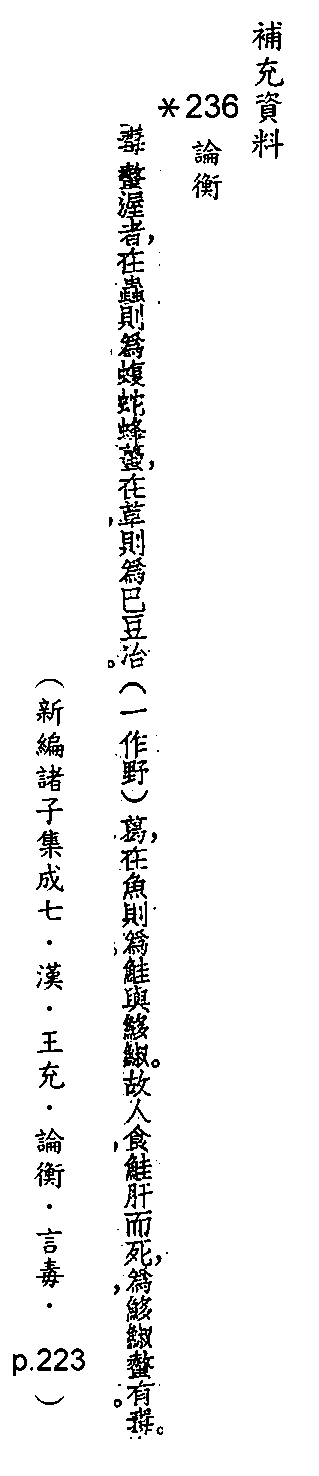 補充資料
*236 論衡
螫渥者,在蟲則為蝮蛇蜂蠆,在草則為巴豆冶(一作野)葛,在魚則為鮭與𩷶䱸。故人食鮭肝而死,為𩷶䱸螫有毒。
(新編諸子集成七·漢·王充·論衡·言毒·p.223)